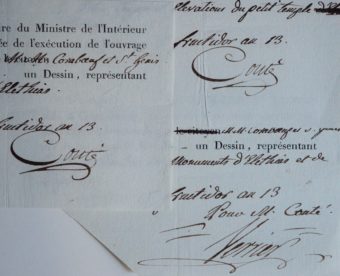 re du Ministre de l'Intérieur
ée de l'exécution de l'ouvrage
MM Comb et St Genis
un Dessin, représentant
Elethias
fructidor an 13.
Conté
élévations du petit Temple
fructidor an 13.
Conté
le citoyen MM
un Dessin, représentant
Monuments d'Elethias et de
fructidor an 13
Pour M. Conté.